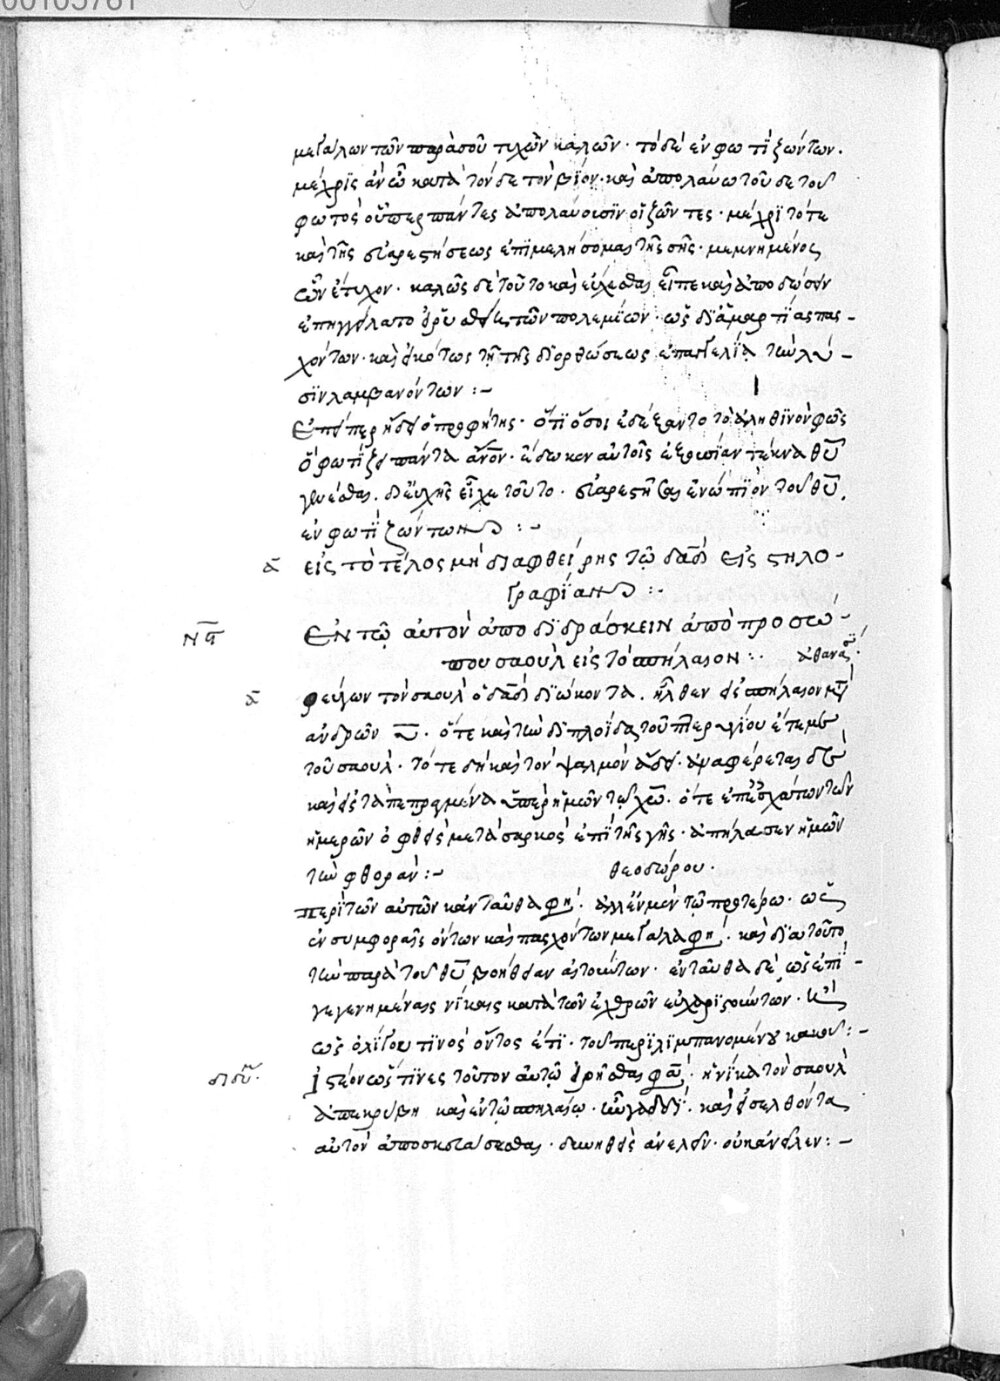 00105781
μεγάλων τῶν παρὰ σοῦ τυχὼν καλῶν· τὸ δὲ ἐν φωτὶ ζώντων·
μέχρις ἂν ὦ κατὰ τόνδε τὸν βίον· καὶ ἀπολαύω τοῦδε τοῦ
φωτὸς οὗπερ πάντες ἀπολαύουσιν οἱ ζῶντες· μέχρι τότε
καὶ τῆς εὐαρεστήσεως ἐπιμελήσομαι τῆς σῆς· μεμνημένος
ὧν ἔτυχον· καλῶς δὲ τοῦτο καὶ εὔχεσθαι εἶπε καὶ ἀποδώσειν
ἐπηγγείλατο τῶν πολεμίων· ὡς δι' ἁμαρτίας πασ-
χόντων· καὶ εἰκότως τῇ τῆς διορθώσεως ἐπαγγελίᾳ τὴν λύ-
σιν λαμβανόντων :-
Ἐπείπερ ᾔδει ὁ προφήτης· ὅτι ὅσοι ἐδέξαντο τὸ ἀληθινὸν φῶς
ὃ φωτίζει πάντα ἄνον· ἔδωκεν αὐτοῖς ἐξουσίαν τέκνα θῦ
γενέσθαι· δι' εὐχῆς εἶχε τοῦτο· εὐαρεστῆσαι ἐνώπιον τοῦ θῦ
ἐν φωτὶ ζώντων :-
α εἰς τὸ τέλος μὴ διαφθείρης τῶ δαδ εἰς στηλο-
γραφίαν :-
νϛ ἐν τῶ αὐτὸν ἀποδιδράσκειν ἀπὸ προσώ-
που σαοὺλ εἰς τὸ σπήλαιον :· ἀθανασ
α φεύγων τὸν σαοὺλ ὁ δαδ διώκοντα· ἦλθεν εἰς σπήλαιον
ἀνδρῶν · ὅτε καὶ τὴν διπλοΐδα τοῦ ἔτεμε
τοῦ σαούλ· τότε δὴ καὶ τὸν ψαλμὸν ἄδει· ἀναφέρεται δὲ
καὶ εἰς τὰ πεπραγμένα ὑπὲρ ἡμῶν τῶ χω· ὅτε ἐπ' ἐσχάτων τῶν
ἡμερῶν ὀφθεὶς μετὰ σαρκὸς ἐπὶ τῆς γῆς· ἀπήλασεν ἡμῶν
τὴν φθοράν :- θεοδώρου·
περὶ τῶν αὐτῶν κἀνταῦθα φη· ἀλλ' ἐν μὲν τῶ προτέρω· ὡς
ἐν συμφοραῖς ὄντων καὶ πασχόντων μεγάλα φη· καὶ διὰ τοῦτο
τὴν παρὰ τοῦ θῦ βοήθειαν αἰτούντων· ἐνταῦθα δὲ ὡς ἐπι-
γεγενημέναις νίκαις κατὰ τῶν ἐχθρῶν εὐχαριστούντων· καὶ
ὡς ὀλίγου τινὸς ὄντος ἔτι· τοῦ περιλιμπανομένου κακοῦ :-
Ἰστέον ὡς τινες τοῦτον αὐτῶ εἰρῆσθαι φα· ἡνίκα τὸν σαοὺλ
ἀπεκρύβη καὶ ἐν τῶ σπηλαίω· · καὶ εἰσελθόντα
αὐτὸν ἀποσκευάσασθαι· δυνηθεὶς ἀνελεῖν· οὐκ ἀνεῖλεν :-